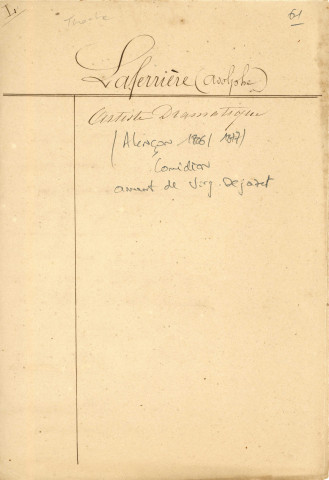 I.
61
Laferrière (Adolphe)
Artiste Dramatique
(Alençon 1806 / 1877)
Comédien
amant de Virg. Dejazet